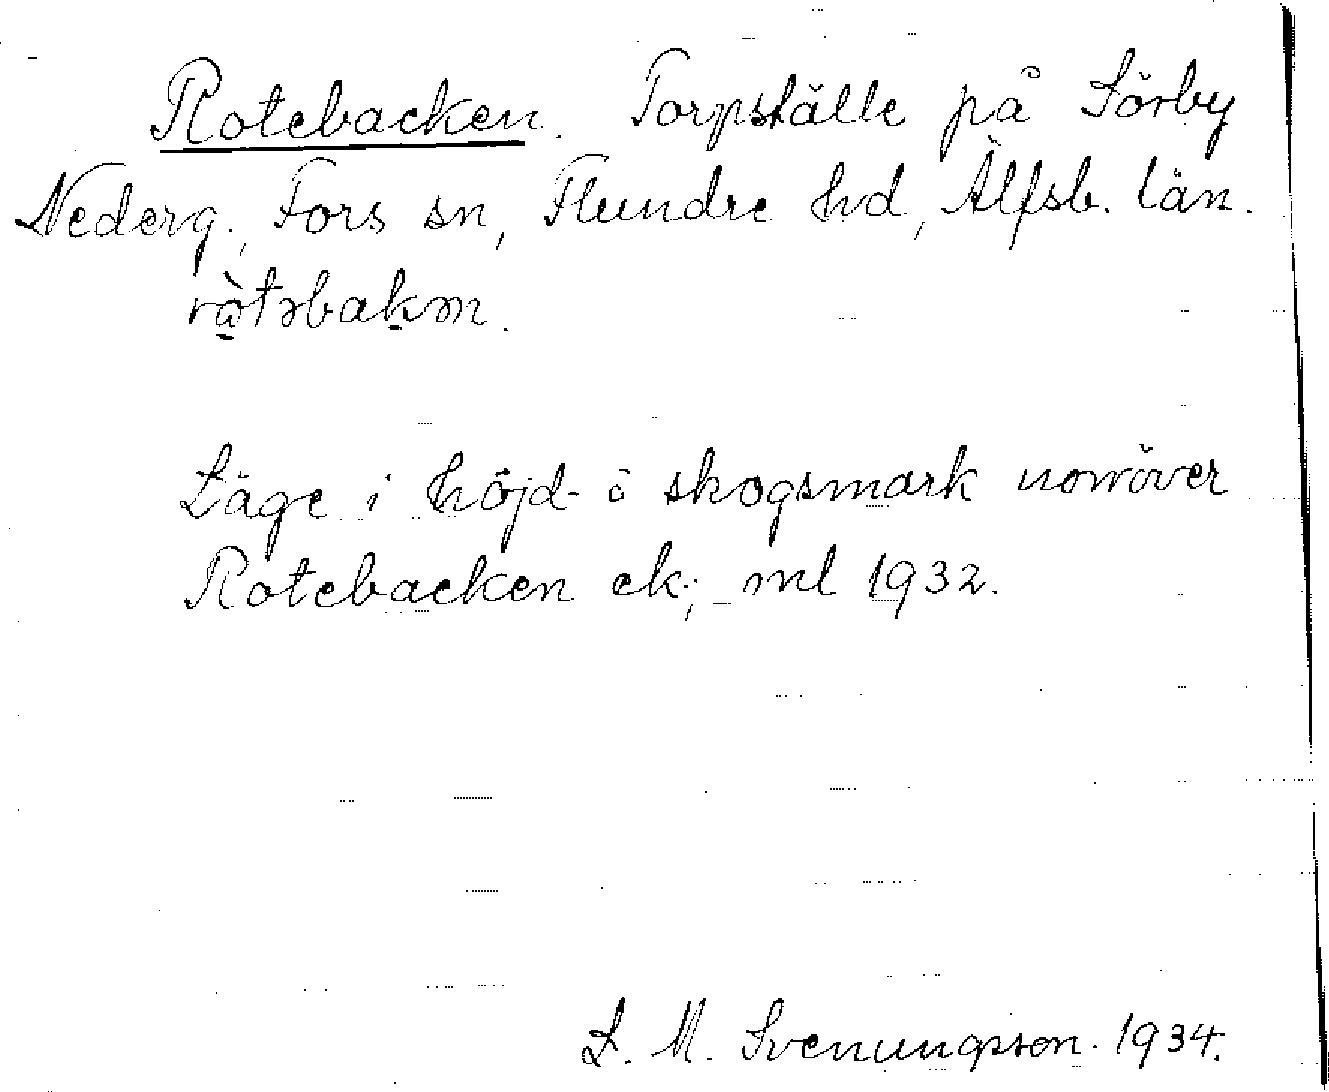 Rotebacken. Torpställe på Sörby
Nederg., Fors sn, Flundre hd, Älfsb. län.
rò̱təbak̠ən.
Läge i höjd- o skogsmark norröver
Rotebacken ek.; ml 1932.
L. M. Svenungsson. 1934.